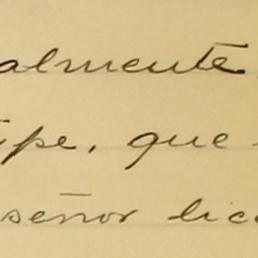 almente,
ipe, que
señor lice